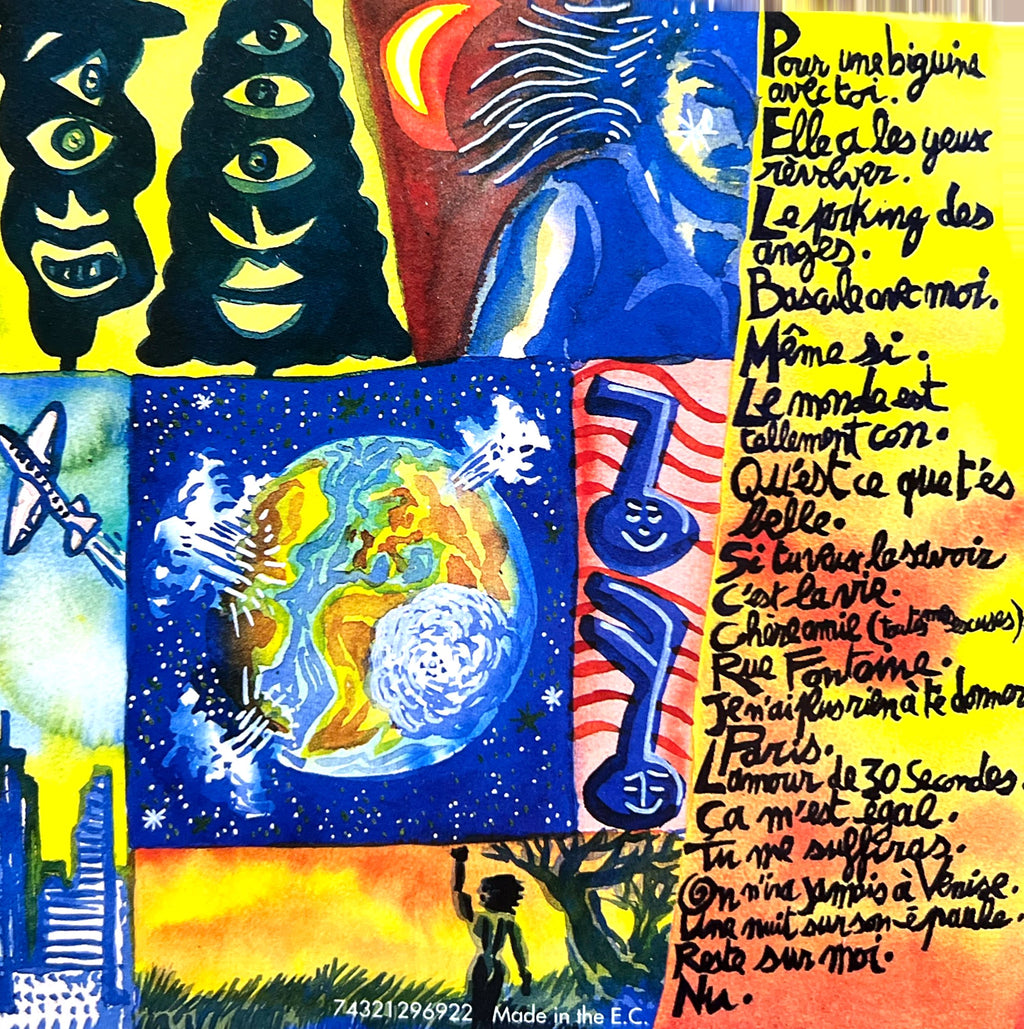 Pour une biguine
avec toi.
Elle a les yeux
révolver.
Le parking des
anges.
Bascule avec moi.
Même si.
Le monde est
tellement con.
Qu'est ce que t'és
belle.
Si tu veux le savoir
C'est la vie.
Chère amie (toutes mes excuses)
Rue Fontaine.
Je n'ai plus rien à te donner
Paris.
L'amour de 30 Secondes.
Ça m'est égal.
Tu me suffiras.
On n'ira jamais à Venise.
Une nuit sur son épaule.
Reste sur moi.
Nu.
74321296922 Made in the E.C.